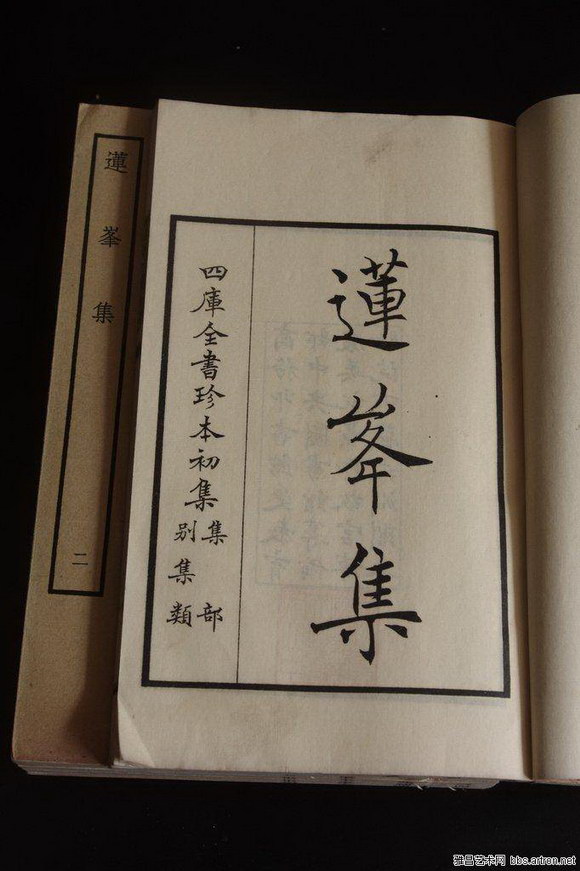 蓮峯集
四庫全書珍本初集
集部
别集類
蓮峯集
二
雅昌艺术网 bbs.artron.net